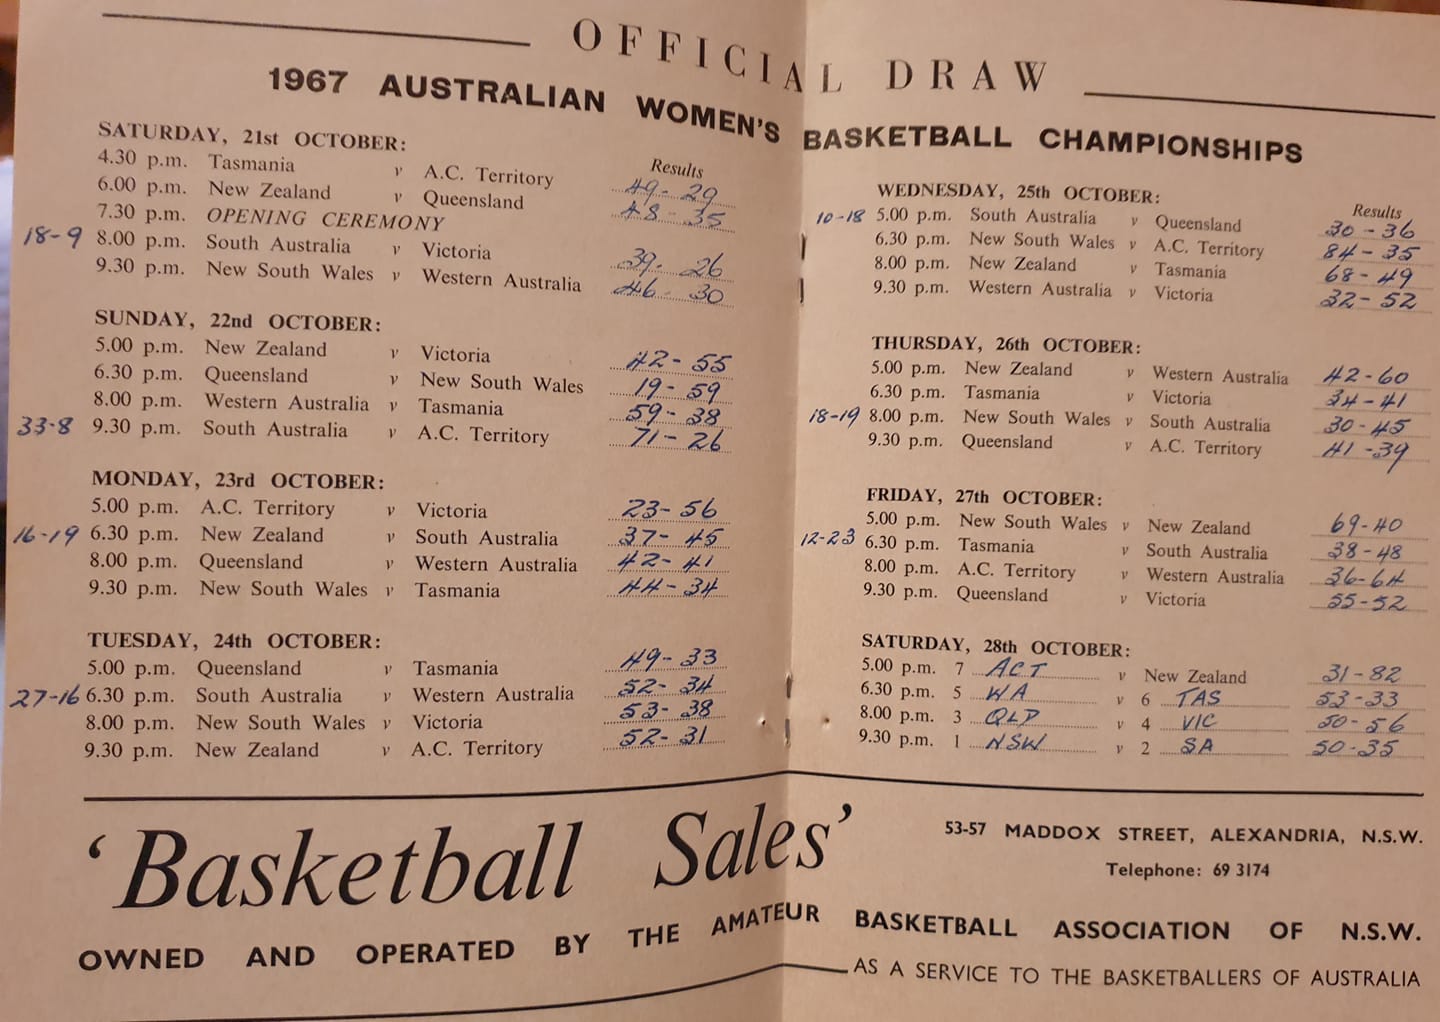 OFFICIAL DRAW
1967 AUSTRALIAN WOMEN'S BASKETBALL CHAMPIONSHIPS
SATURDAY, 21st OCTOBER:
Results
4.30 p.m. Tasmania v A.C. Territory 49-29
6.00 p.m. New Zealand v Queensland 48-35
7.30 p.m. OPENING CEREMONY
18-9 8.00 p.m. South Australia v Victoria 39-26
9.30 p.m. New South Wales v Western Australia 46-30
SUNDAY, 22nd OCTOBER:
5.00 p.m. New Zealand v Victoria 42-55
6.30 p.m. Queensland v New South Wales 19-59
8.00 p.m. Western Australia v Tasmania 59-38
33-8 9.30 p.m. South Australia v A.C. Territory 71-26
MONDAY, 23rd OCTOBER:
5.00 p.m. A.C. Territory v Victoria 23-56
16-19 6.30 p.m. New Zealand v South Australia 37-45
8.00 p.m. Queensland v Western Australia 42-41
9.30 p.m. New South Wales v Tasmania 44-34
TUESDAY, 24th OCTOBER:
5.00 p.m. Queensland v Tasmania 49-33
27-16 6.30 p.m. South Australia v Western Australia 52-34
8.00 p.m. New South Wales v Victoria 53-38
9.30 p.m. New Zealand v A.C. Territory 52-31
WEDNESDAY, 25th OCTOBER:
Results
10-18 5.00 p.m. South Australia v Queensland 30-36
6.30 p.m. New South Wales v A.C. Territory 84-35
8.00 p.m. New Zealand v Tasmania 68-49
9.30 p.m. Western Australia v Victoria 32-52
THURSDAY, 26th OCTOBER:
5.00 p.m. New Zealand v Western Australia 42-60
6.30 p.m. Tasmania v Victoria 34-41
18-19 8.00 p.m. New South Wales v South Australia 30-45
9.30 p.m. Queensland v A.C. Territory 41-39
FRIDAY, 27th OCTOBER:
5.00 p.m. New South Wales v New Zealand 69-40
12-23 6.30 p.m. Tasmania v South Australia 38-48
8.00 p.m. A.C. Territory v Western Australia 36-64
9.30 p.m. Queensland v Victoria 55-52
SATURDAY, 28th OCTOBER:
5.00 p.m. 7 ACT v New Zealand 31-82
6.30 p.m. 5 WA v 6 TAS 53-33
8.00 p.m. 3 QLD v 4 VIC 50-56
9.30 p.m. 1 NSW v 2 SA 50-35
'Basketball Sales'
53-57 MADDOX STREET, ALEXANDRIA, N.S.W.
Telephone: 69 3174
OWNED AND OPERATED BY THE AMATEUR BASKETBALL ASSOCIATION OF N.S.W.
AS A SERVICE TO THE BASKETBALLERS OF AUSTRALIA